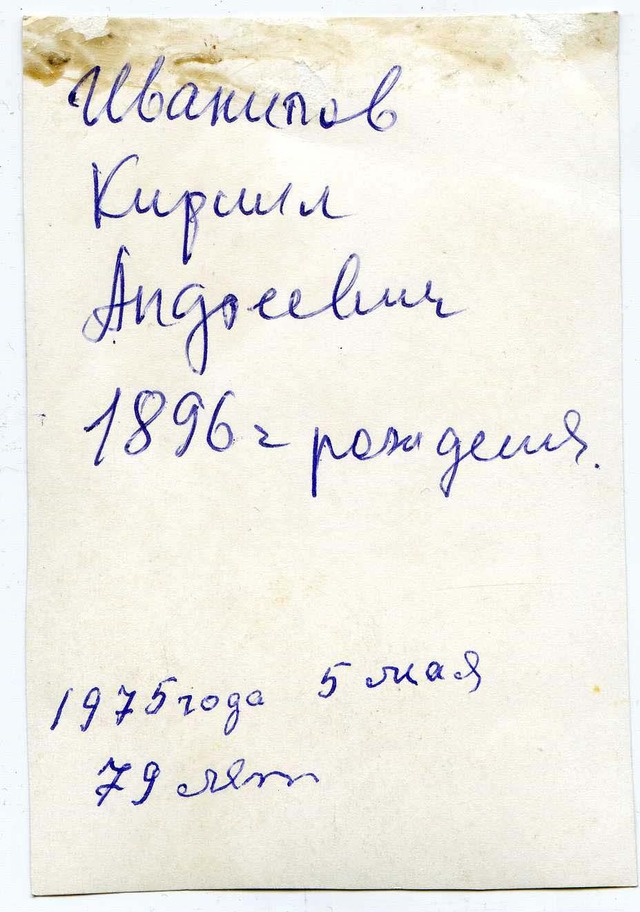 Иванипов
Кирилл
Андреевич
1896 г рождения.
1975 года 5 мая
79 лет